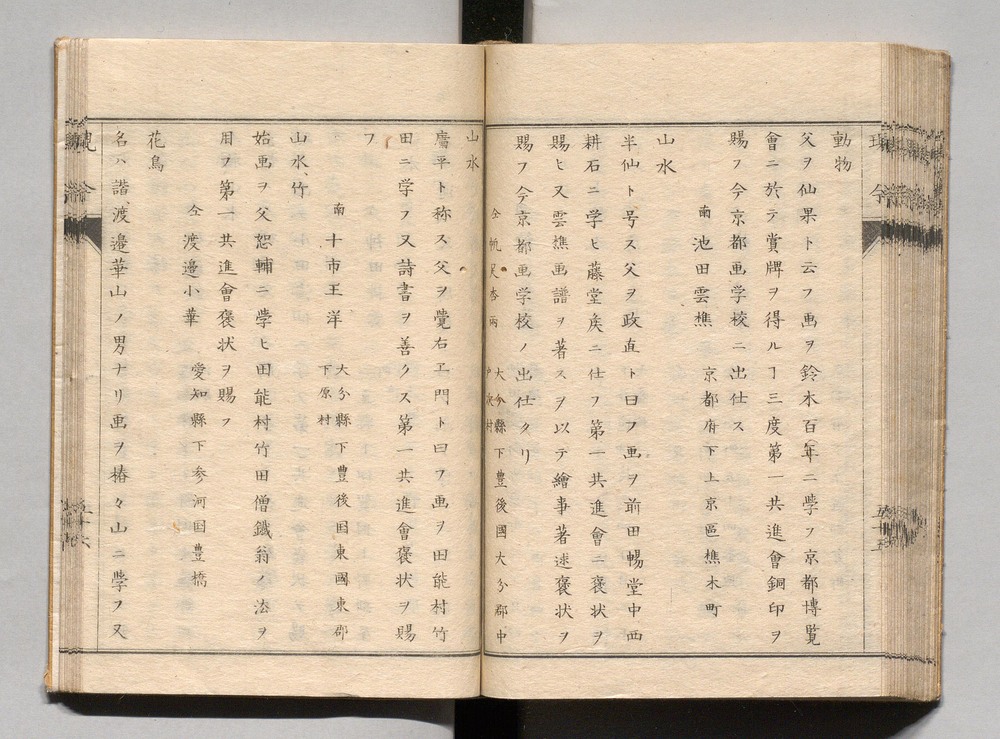 動物
父ヲ仙果ト云フ画ヲ鈴木百年ニ學フ京都博覧
會ニ於テ賞牌ヲ得ルヿ三度第一共進會銅印ヲ
賜フ今京都画学校ニ出仕ス
南 池田雲樵 京都府下上京區樵木町
山水
半仙ト号ス父ヲ政直ト曰フ画ヲ前田暢堂中西
耕石ニ学ヒ藤堂矦ニ仕フ第一共進會ニ褒状ヲ
賜ヒ又雲樵画譜ヲ著スヲ以テ繪事著述褒状ヲ
賜フ今京都画学校ノ出仕タリ
仝 帆足杏雨 大分縣下豊後國大分郡中
村
山水
庸平ト称ス父ヲ覺右エ門ト曰フ画ヲ田能村竹
田ニ学フ又詩書ヲ善クス第一共進會褒状ヲ賜
フ
南 十市王洋 大分縣下豊後国東國東郡
下原村
山水、竹
始画ヲ父恕輔ニ學ヒ田能村竹田僧鐵翁ノ法ヲ
用フ第一共進會褒状ヲ賜フ
仝 渡邉小華 愛知縣下参河国豊橋
花鳥
名ハ諧渡邉華山ノ男ナリ画ヲ椿々山ニ學フ又